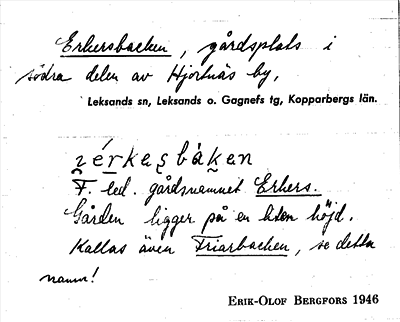 Erkersbacken, gårdsplats i
södra delen av Hjortnäs by,
Leksands sn, Leksands o. Gagnefs tg, Kopparbergs län.
F. led. gårdsnamnet Erkers.
Gården ligger på en liten höjd.
Kallas även Friarbacken, se detta
namn!
ERIK-OLOF BERGFORS 1946